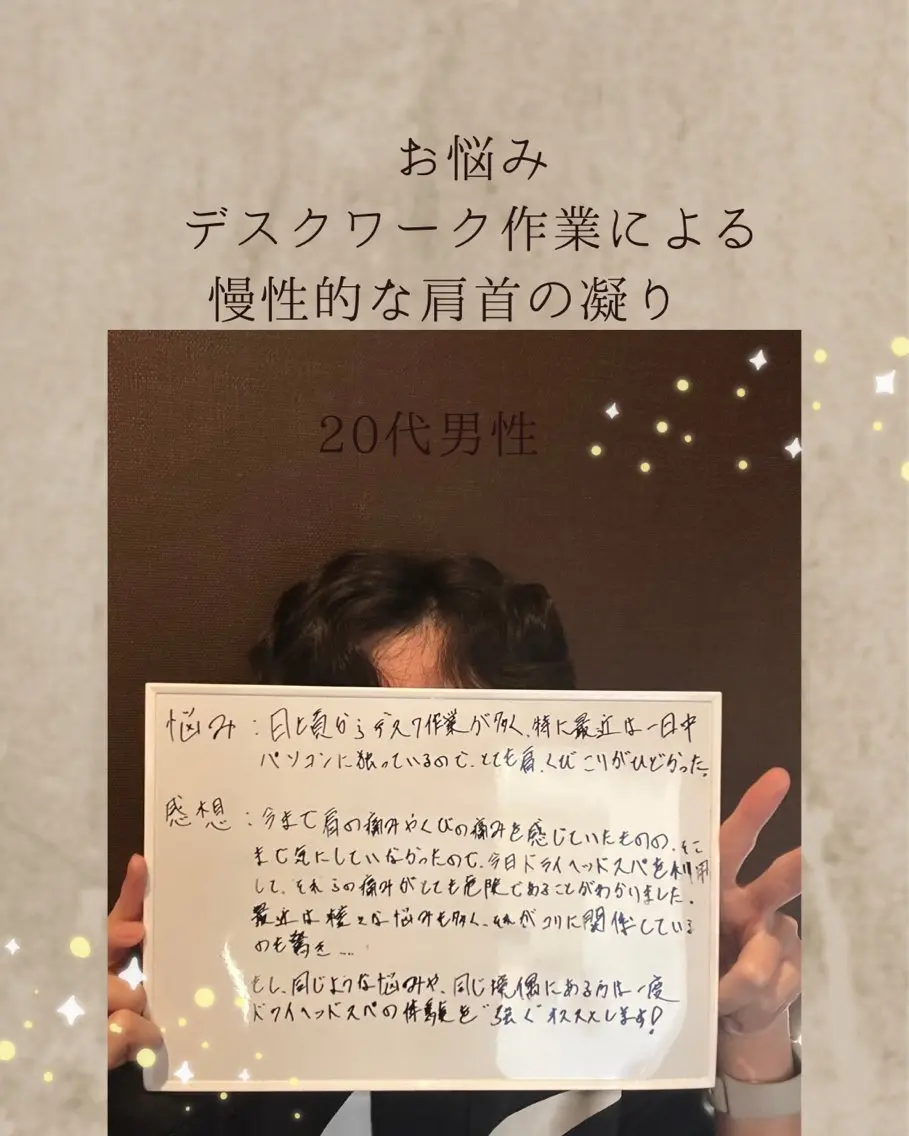 お悩み
デスクワーク作業による
慢性的な肩首の凝り
20代男性
悩み：日頃からデスク作業が多く、特に最近は一日中
パソコンに張っているので、とても肩、くびこりがひどかった。
感想：今まで肩の痛みやくびの痛みを感じていたものの、そこ
まで気にしていなかったので、今日ドライヘッドスパを利用
して、それらの痛みがとても危険であることがわかりました。
最近は様々な悩みも多く、それがコリに関係している
のも驚き…
もし、同じような悩みや、同じ境偶にある方は一度
ドライヘッドスパの体験を"強く"オススメします!